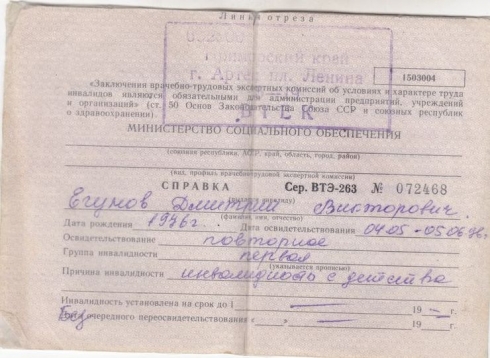 Линия отреза
Приморский край
г. Артем пл. Ленина
ВТЕК
1503004
«Заключения врачебно-трудовых экспертных комиссий об условиях и характере труда
инвалидов являются обязательными для администрации предприятий, учреждений
и организаций» (ст. 50 Основ Законодательства Союза ССР и союзных республик
о здравоохранении).
МИНИСТЕРСТВО СОЦИАЛЬНОГО ОБЕСПЕЧЕНИЯ
(союзная республика, АССР, край, область, город, район)
(вид, профиль врачебно-трудовой экспертной комиссии)
СПРАВКА Сер. ВТЭ-263 № 072468
Егунов Дмитрий Викторович.
(фамилия, имя, отчество)
Дата рождения 1946г. Дата освидетельствования 04.05-05.06
Освидетельствование повторное
Группа инвалидности первая
(указывается прописью)
Причина инвалидности инвалидность с детства
Инвалидность установлена на срок до 1 — 19 — г.
Без очередного переосвидетельствования « — » — 19 г.